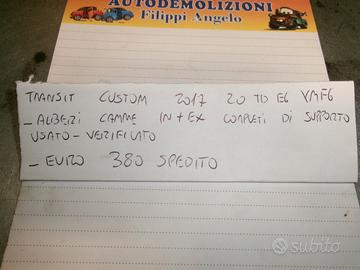 AUTODEMOLIZIONI
Filippi Angelo
TRANSIT CUSTOM 2017 20 TD E6 YMF6
- ALBERI CAMME IN + EX COMPLETI DI SUPPORTO
USATO - VERIFICATO
- EURO 380 SPEDITO
subito